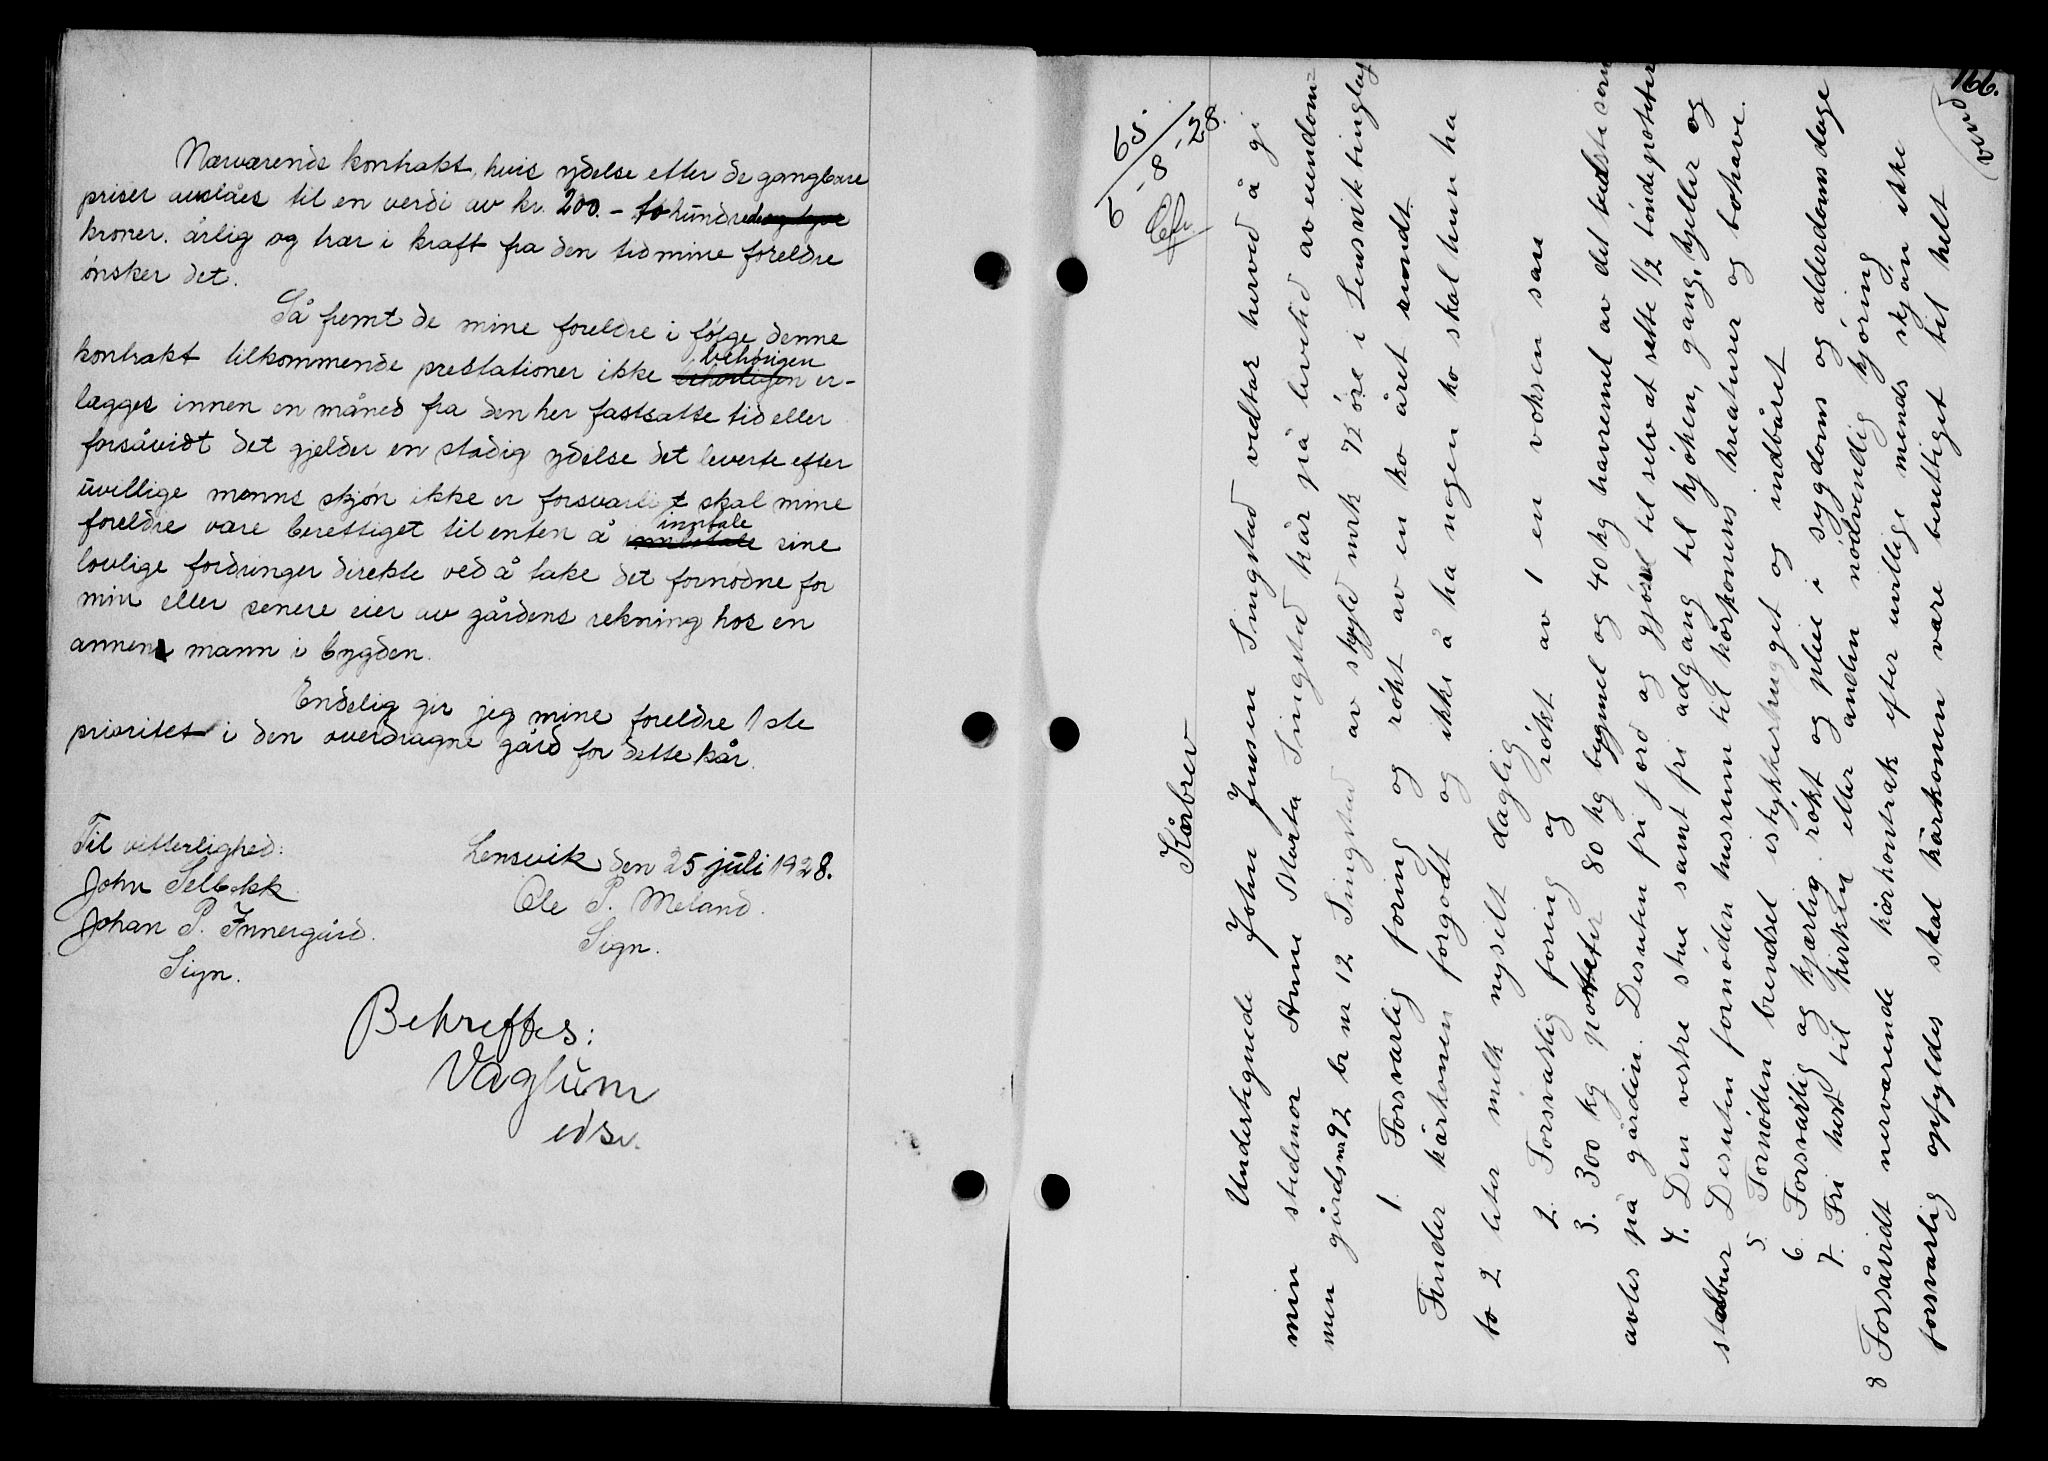 Nærværende kontrakt, hvis ydelse etter de gangbare
priser anslåes til en verdi av kr. 200.- to hundrede og tyve
kroner. årlig og trær i kraft fra den tid mine foreldre
ønsker det.
Så fremt de mine foreldre i følge denne
kontrakt tilkommende prestationer ikke behørigen er-
lægges innen en måned fra den her fastsatte tid eller
forsåvidt det gjelder en stadig ydelse det leverte efter
uvillige menns skjøn ikke er forsvarlig skal mine
foreldre være berettiget til enten å inntale sine
lovlige fordringer direkte ved å take det fornødne for
min eller senere eier av gårdens rekning hos en
annen mann i bygden.
Endelig gir jeg mine foreldre 1ste
prioritet i den overdragne gård for dette kår.
Til vitterlighed:
John Selbekk
Johan P. Innergård.
Sign.
Lensvik den 25 juli 1928.
Ole P. Meland.
Sign.
Bekreftes:
Vaglum
edsv.
166.
65
6-8-28.
Kårbrev
Undertegnede John Jensen Singstad vedtar herved å gi
min stedmor Anne Marta Singstad kår på levetid av eiendom-
men gårdsnr 92 br nr 12 Singstad av skyld mrk 72 øre i Lensvik tinglag
1. Forsvarlig foring og røkt av en ko året rundt.
Finder kårkonen forgodt og ikke å ha nogen ko skal hun ha
to 2 liter melk nysilt daglig
2. Forsvarlig foring og røkt av 1 en voksen sau
3. 300 kg poteter 80 kg bygmel og 40 kg havremel av det bedste som
avles på gården. Desuten fri jord og gjøsel til selv at sette 1/2 tønde poteter
4. Den vestre stue samt fri adgang til kjøken, gang, kjeller og
stabbur Desuten fornøden husrum til kårkonens kreaturer og bohave.
5. Fornøden brendsel istykkerhugget og indbåret
6. Forsvarlig og kjærlig røkt og pleie i sygdoms og alderdoms dage
7. Fri hest til kirken eller anden nødvendig kjøring
8 Forsåvidt nerværende kårkontrak efter uvillige mends skjøn ikke
forsvarlig opfyldes skal kårkonen være berettiget til helt